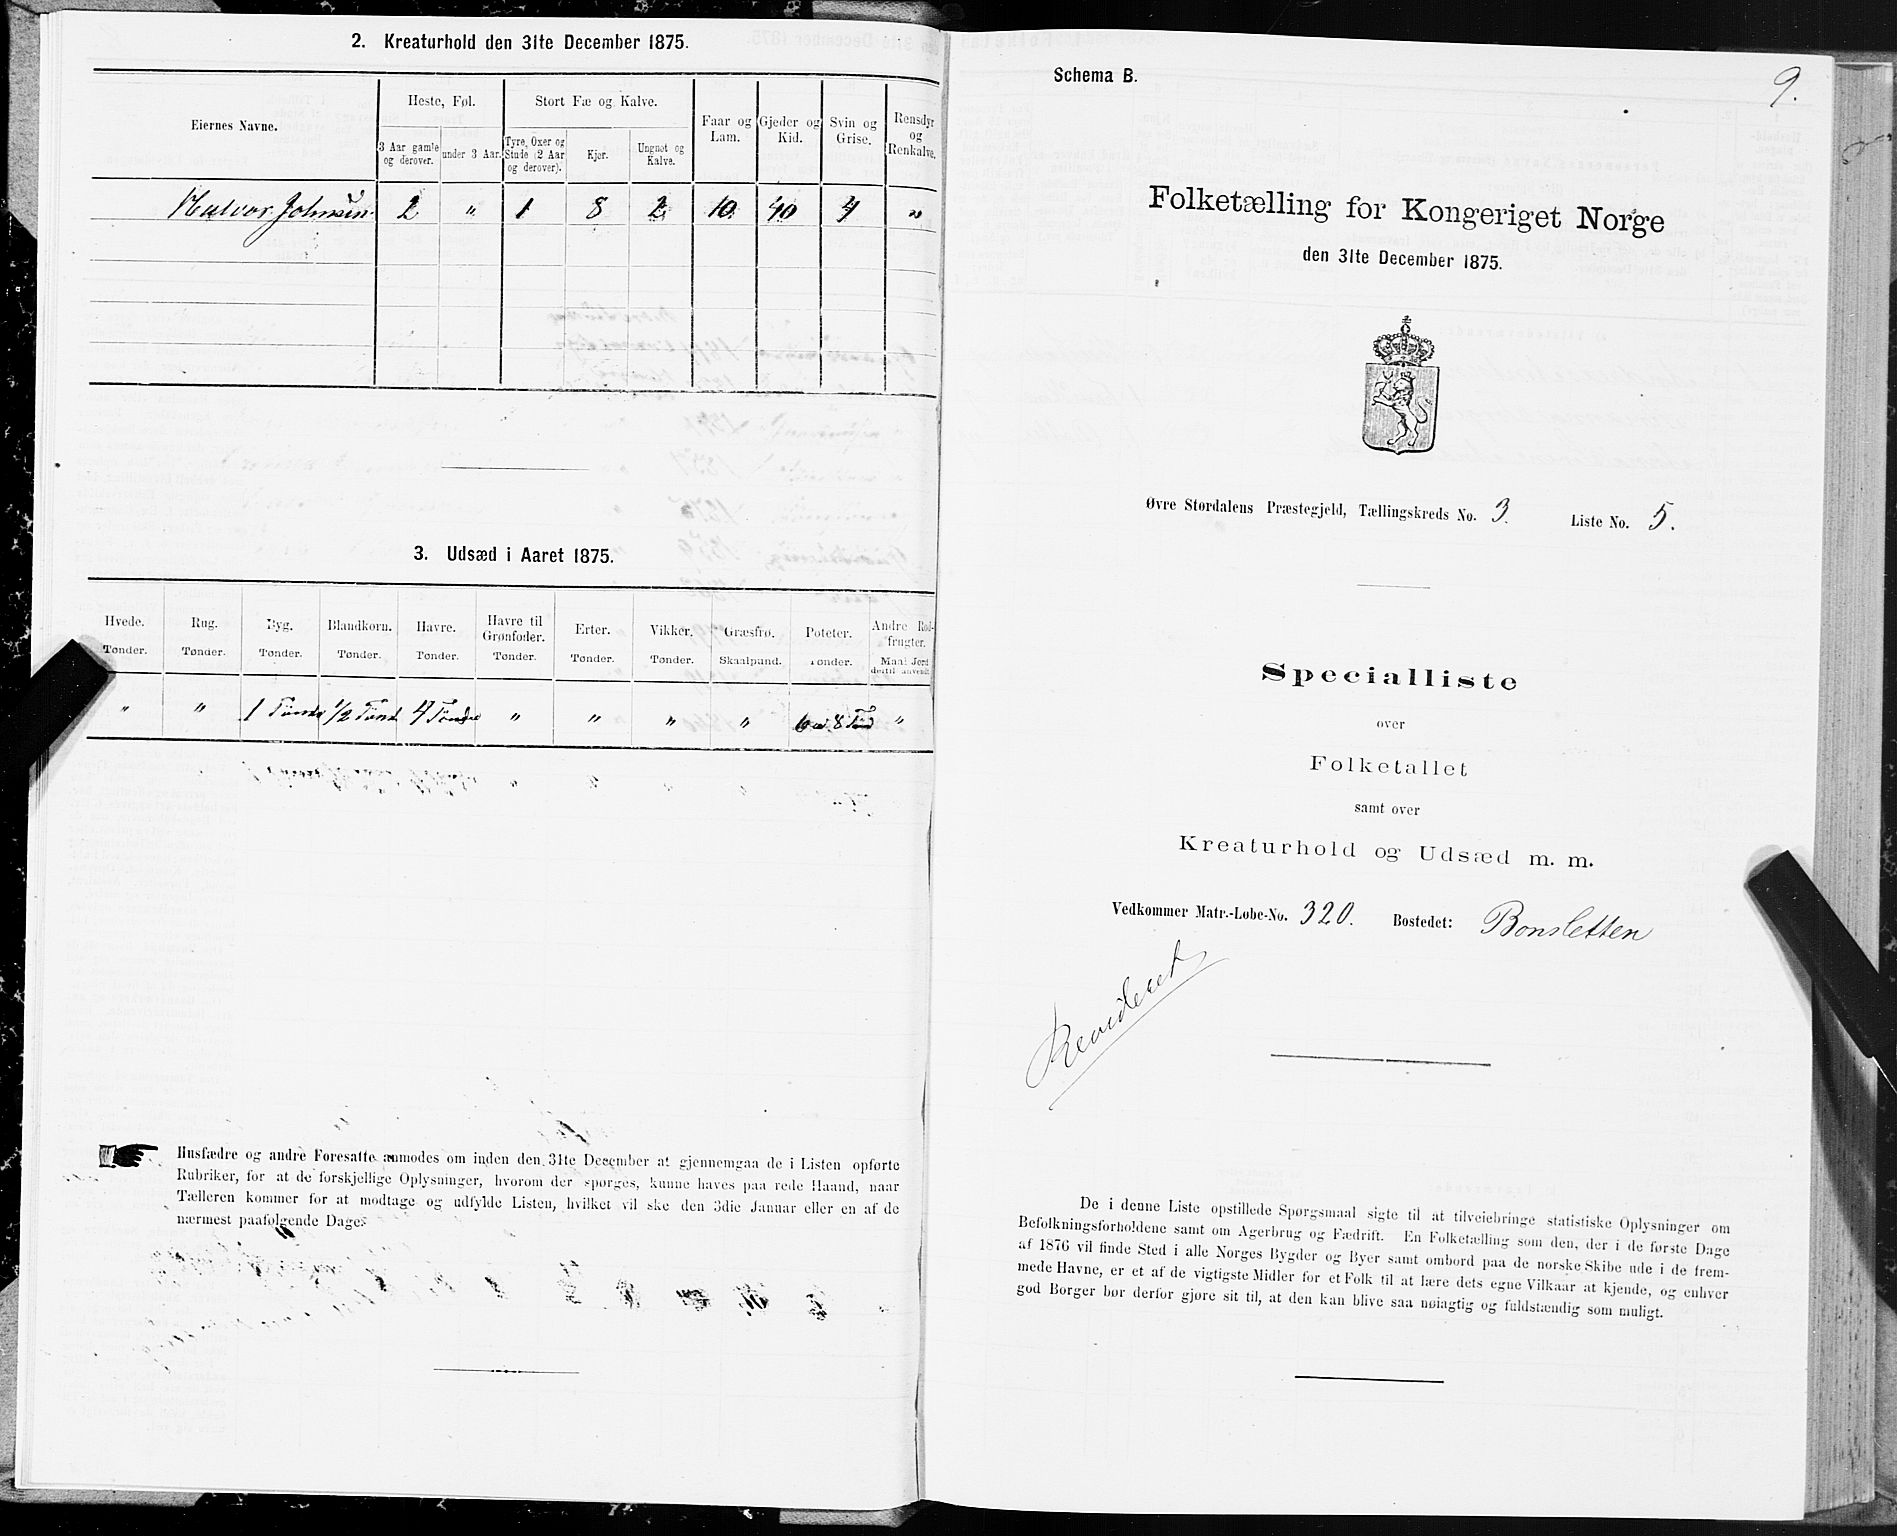 2. Kreaturhold den 31te December 1875.
Eiernes Navne.
Heste, Føl.
Stort Fæ og Kalve.
Faar og Lam.
Gjeder og Kid.
Svin og Grise.
Rensdyr og Renkalve.
3 Aar gamle og derover.
under 3 Aar.
Tyre, Oxer og Stude (2 Aar og derover).
Kjør.
Ungnøt og Kalve.
Halvor Johnsen 2 " 1 8 2 10 40 4 "
3. Udsæd i Aaret 1875.
Hvede. Rug. Byg. Blandkorn. Havre. Havre til Grønfoder. Erter. Vikker. Græsfrø. Poteter. Andre Rodfrugter.
Tønder. Tønder. Tønder. Tønder. Tønder. Tønder. Tønder. Tønder. Skaalpund. Tønder. Maal Jord dertil anvendt.
" " 1 Tønde 1/2 Tønd 4 Tønder " " " " 8 Tønd "
Husfædre og andre Foresatte anmodes om inden den 31te December at gjennemgaa de i Listen opførte
Rubriker, for at de forskjellige Oplysninger, hvorom der spørges, kunne haves paa rede Haand, naar
Tælleren kommer for at modtage og udfylde Listen, hvilket vil ske den 3die Januar eller en af de
nærmest paafølgende Dage.
Schema B.
9.
Folketælling for Kongeriget Norge
den 31te December 1875.
Øvre Stordalens Præstegjeld, Tællingskreds No. 3. Liste No. 5.
Specialliste
over
Folketallet
samt over
Kreaturhold og Udsæd m. m.
Vedkommer Matr.-Løbe-No. 320. Bostedet: Bonsletten
Revideret
De i denne Liste opstillede Spørgsmaal sigte til at tilveiebringe statistiske Oplysninger om
Befolkningsforholdene samt om Agerbrug og Fædrift. En Folketælling som den, der i de første Dage
af 1876 vil finde Sted i alle Norges Bygder og Byer samt ombord paa de norske Skibe ude i de frem-
mede Havne, er et af de vigtigste Midler for et Folk til at lære dets egne Vilkaar at kjende, og enhver
god Borger bør derfor gjøre sit til, at den kan blive saa nøiagtig og fuldstændig som muligt.